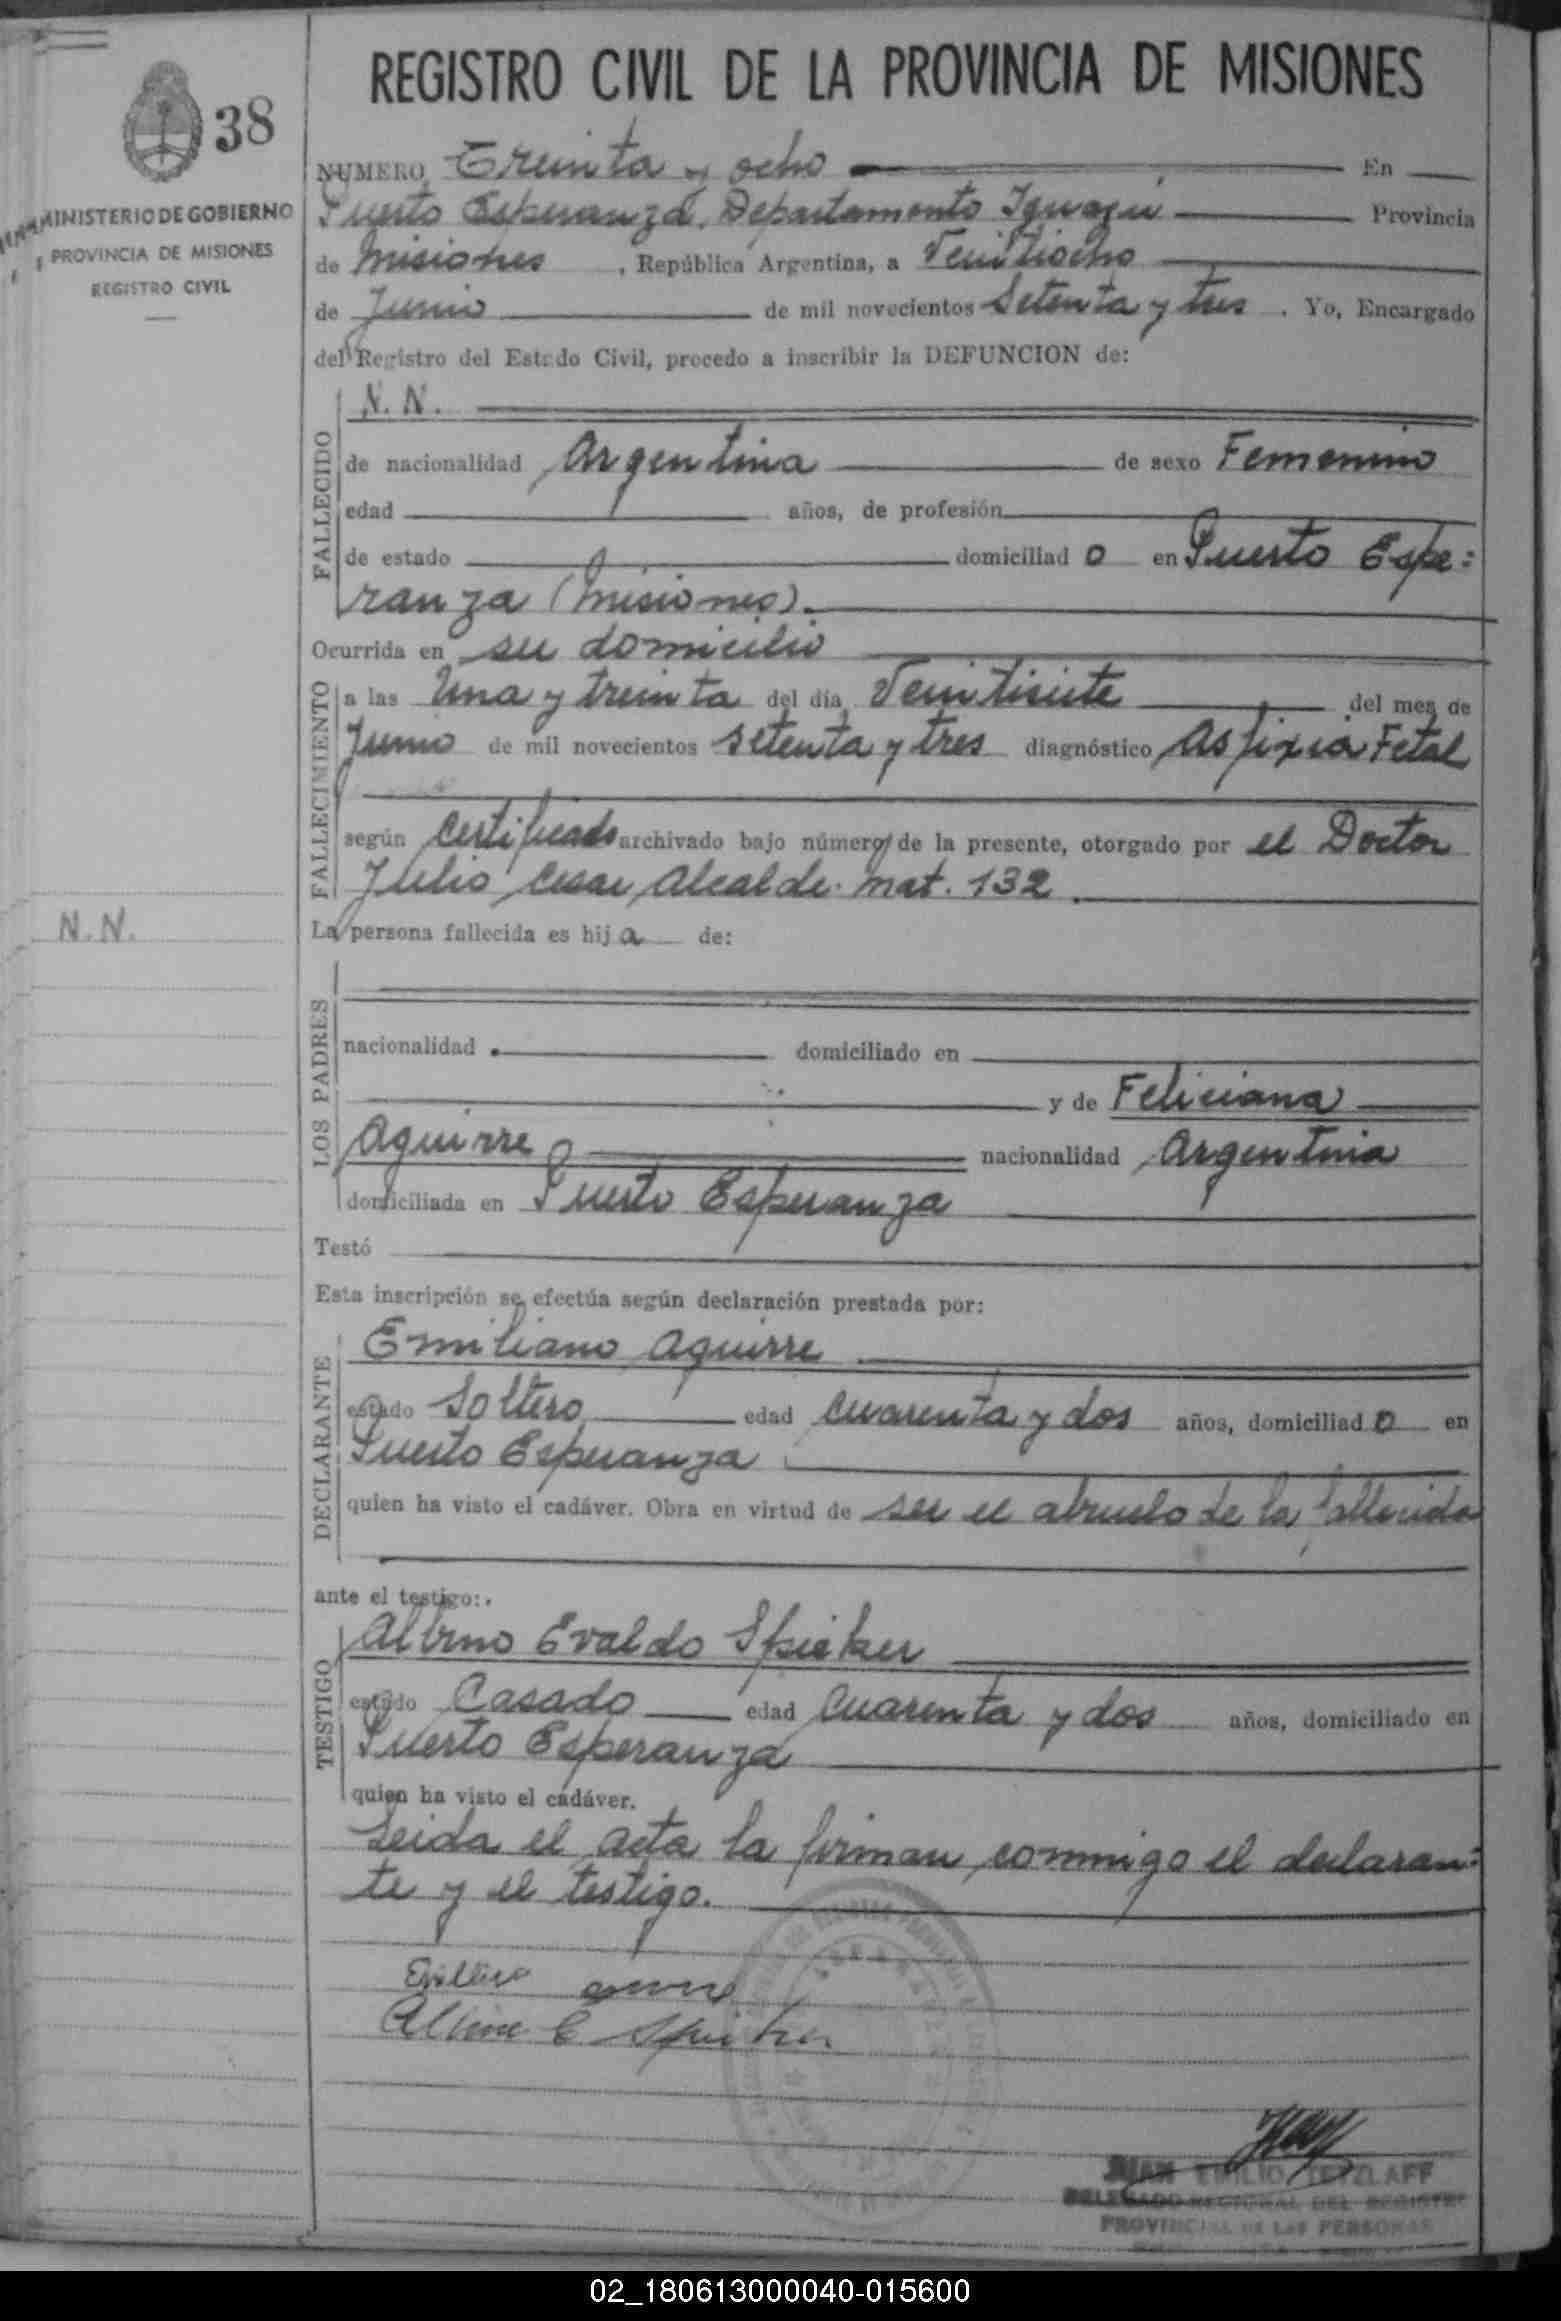 REGISTRO CIVIL DE LA PROVINCIA DE MISIONES
38
MINISTERIO DE GOBIERNO
PROVINCIA DE MISIONES
REGISTRO CIVIL
NUMERO Treinta y ocho En
Puerto Esperanza, Departamento Iguazú Provincia
de Misiones , República Argentina, a Veintiocho
de Junio de mil novecientos Setenta y tres . Yo, Encargado
del Registro del Estado Civil, procedo a inscribir la DEFUNCION de:
FALLECIDO
N. N.
de nacionalidad Argentina de sexo Femenino
edad años, de profesión
de estado domiciliad o en Puerto Espe=
ranza (Misiones).
Ocurrida en su domicilio
FALLECIMIENTO
a las Una y treinta del día Veintisiete del mes de
Junio de mil novecientos setenta y tres diagnóstico Asfixia Fetal
según Certificado archivado bajo número de la presente, otorgado por el Doctor
Julio Cesar Alcalde. Mat. 132
N.N.
La persona fallecida es hij a de:
LOS PADRES
nacionalidad domiciliado en
y de Feliciana
Aguirre nacionalidad Argentina
domiciliada en Puerto Esperanza
Testó
Esta inscripción se efectúa según declaración prestada por:
DECLARANTE
Emiliano Aguirre
estado Soltero edad Cuarenta y dos años, domiciliad o en
Puerto Esperanza
quien ha visto el cadáver. Obra en virtud de ser el abuelo de la fallecida
ante el testigo:
TESTIGO
Albino Evaldo Spieker
estado Casado edad Cuarenta y dos años, domiciliado en
Puerto Esperanza
quien ha visto el cadáver.
Leida el acta la firman conmigo el declaran=
te y el testigo.
Albino E Spieker
JUAN EMILIO TETZLAFF
DELEGADO REGIONAL DEL REGISTRO
PROVINCIAL DE LAS PERSONAS
02_180613000040-015600